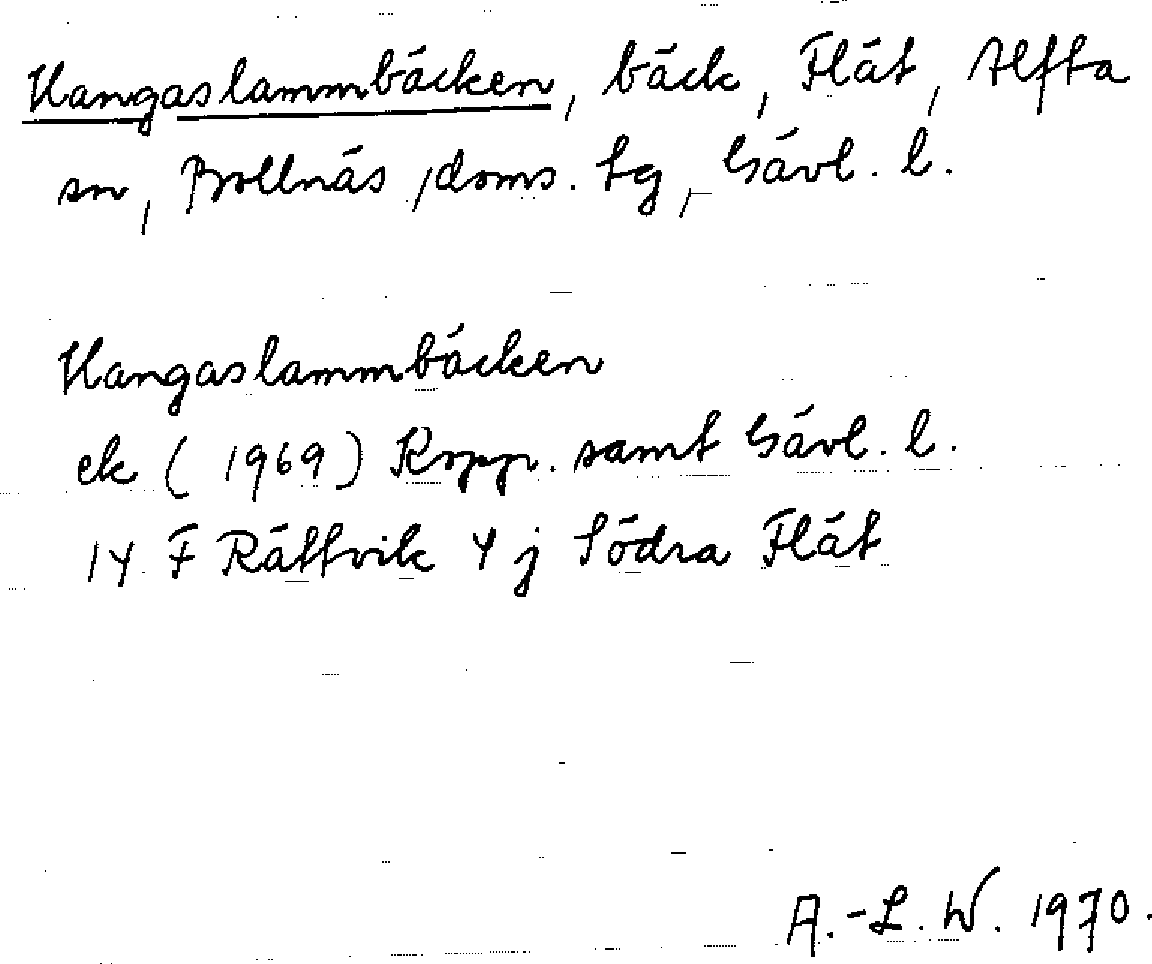 Hangaslammbäcken, bäck, Flät, Alfta
sn, Bollnäs doms. tg, Gävl. l.
Hangaslammbäcken
ek (1969) Kopp. samt Gävl. l.
14 F Rättvik 4 j Södra Flät
A.-L. W. 1970.